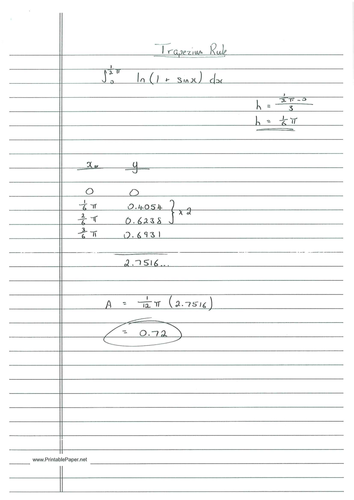 Trapezium Rule
∫₀^{½π} ln(1 + sin x) dx
h = (½π - 0)/3
h = ⅙π
x y
0 0
1/6 π 0.4054
2/6 π 0.6238 } x 2
3/6 π 0.6931
2.7516...
A = 1/12 π (2.7516)
= 0.72
www.PrintablePaper.net